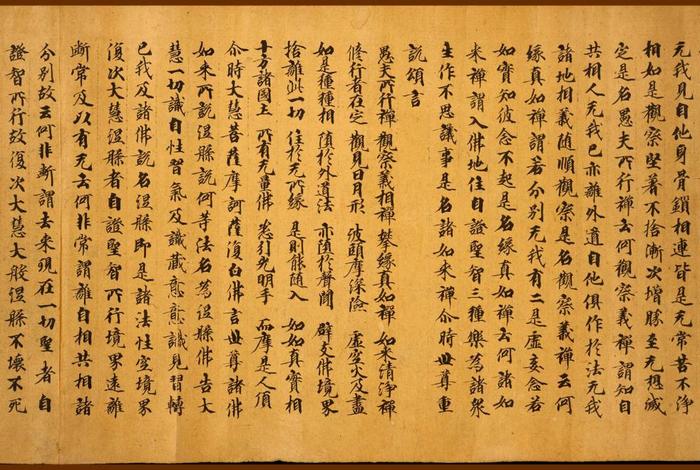 无我見自他身骨鎖相連皆是无常苦不淨
相如是觀察堅著不捨漸次增勝至无想滅
定是名愚夫所行禪云何觀察義禪謂知自
共相人无我已亦離外道自他俱作於法无我
諸地相義隨順觀察是名觀察義禪云何
緣真如禪謂若分別无我有二是虛妄念若
如實知彼念不起是名緣真如禪云何諸如
来禪謂入佛地住自證聖智三種樂為諸衆
生作不思議事是名諸如来禪尒時世尊重
說頌言
愚夫所行禪 觀察義相禪 攀緣真如禪 如来清淨禪
修行者在定 觀見日月形 波頭摩深險 虛空火及盡
如是種種相 墮於外道法 亦墮於聲聞 辟支佛境界
捨離此一切 住於无所緣 是則能隨入 如如真實相
十方諸國土 所有无量佛 悉引光明手 而摩是人頂
尒時大慧菩薩摩訶薩復白佛言世尊諸佛
如来所說涅槃說何等法名為涅槃佛告大
慧一切識自性習氣及識藏意意識見習轉
已我及諸佛說名涅槃即是諸法性空境界
復次大慧涅槃者自證聖智所行境界遠離
斷常及以有无云何非常謂離自相共相諸
分別故云何非斷謂去来現在一切聖者自
證智所行故復次大慧大般涅槃不壞不死